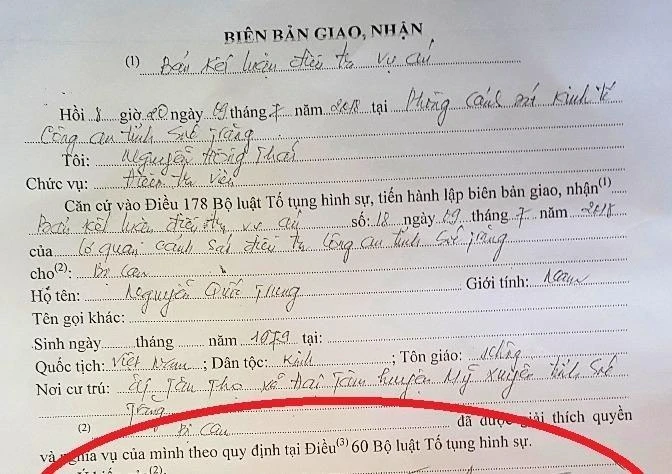 BIÊN BẢN GIAO, NHẬN
(1) Bản kết luận điều tra vụ án
Hồi 8 giờ 20 ngày 19 tháng 7 năm 2018 tại Phòng cảnh sát kinh tế
Công an tỉnh Sóc Trăng
Tôi: Nguyễn Hồng Thái
Chức vụ: Điều tra viên
Căn cứ vào Điều 178 Bộ luật Tố tụng hình sự, tiến hành lập biên bản giao, nhận(1)
Bản kết luận điều tra vụ án số: 18 ngày 19 tháng 7 năm 2018
của Cơ quan cảnh sát điều tra Công an tỉnh Sóc Trăng
cho(2): Bị can
Họ tên: Nguyễn Quốc Trung Giới tính: Nam
Tên gọi khác:
Sinh ngày tháng năm 1979 tại:
Quốc tịch: Việt Nam; Dân tộc: Kinh; Tôn giáo: không
Nơi cư trú: ấp Tân Thọ xã Đại Tâm huyện Mỹ Xuyên tỉnh Sóc
Trăng
(2) Bị can đã được giải thích quyền
và nghĩa vụ của mình theo quy định tại Điều(3) 60 Bộ luật Tố tụng hình sự.